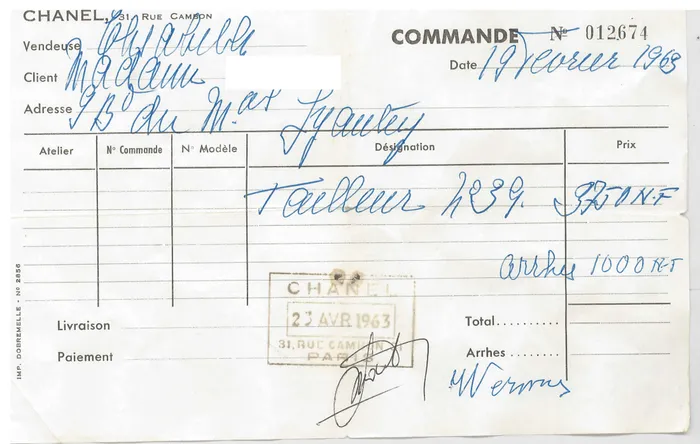 CHANEL, 31 RUE CAMBON
COMMANDE Nº 012674
Vendeuse
Date 19 Février 1963
Client Madame
Adresse 9 Bd du Mal Lyautey
Atelier Nº Commande Nº Modèle Désignation Prix
Tailleur 4239. 3750 N.F
arrhes 1000 N.F
CHANEL
23 AVR 1963
31, RUE CAMBON
PARIS
Livraison
Total..........
Paiement
Arrhes..........
IMP. DOBREMELLE - Nº 2856